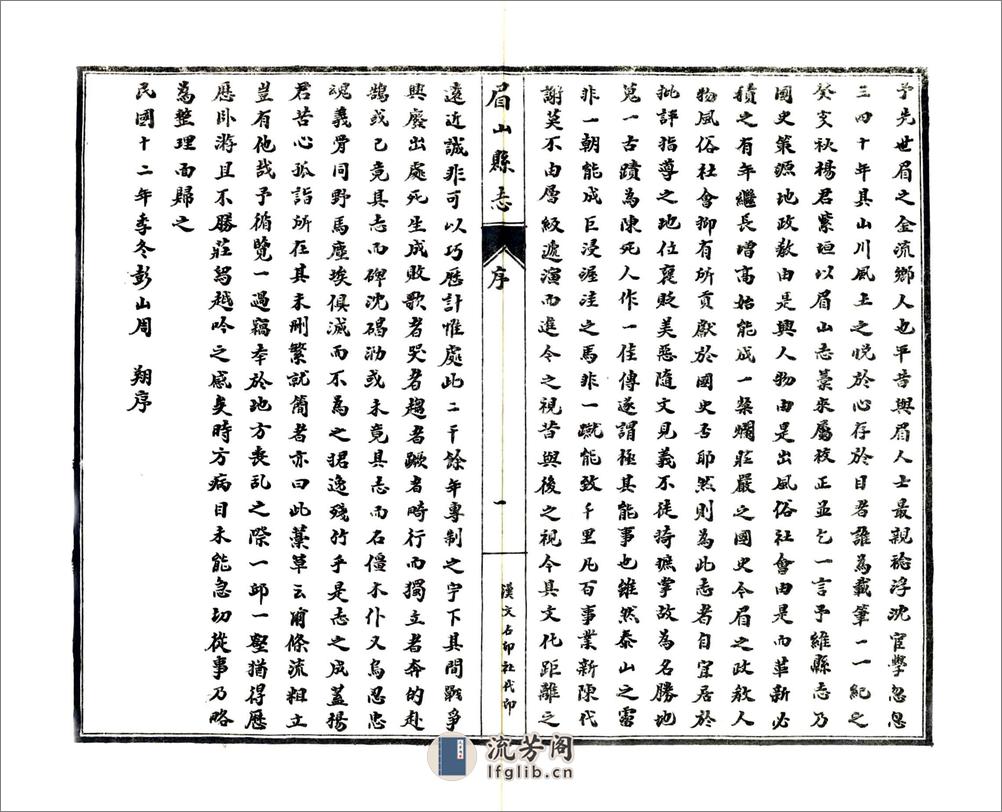 予先世眉之金流鄉人也平昔與眉人士最親稔浮沈宦學忽忽
三四十年其山川風土之悅於心存於目者誰為載筆一一紀之
癸亥秋楊君紫垣以眉山志藁來屬校正並乞一言予維縣志乃
國史策源地政教由是興人物由是出風俗社會由是而革新必
積之有年繼長增高始能成一粲爛莊嚴之國史今眉之政教人
物風俗社會抑有所貢獻於國史否耶然則為此志者自宜居於
批評指導之地位褒貶美惡隨文見義不徒掎摭掌故為名勝地
覓一古蹟為陳死人作一佳傳遂謂極其能事也雖然泰山之霤
非一朝能成巨浸渥洼之馬非一蹴能致千里凡百事業新陳代
謝莫不由層級遞演而進今之視昔與後之視今其文化距離之
眉山縣志 序 一 漢文石印社代印
遠近誠非可以巧歷計惟處此二千餘年專制之宇下其間戰爭
興廢出處死生成敗歌者哭者趨者蹶者時行而獨立者奔的赴
鵠或已竟其志而碑沈碣泐或未竟其志而石僵木仆又烏忍忠
魂義骨同野馬塵埃俱滅而不為之珺逸殘竹乎是志之成蓋楊
君苦心孤詣所在其未刪繁就簡者亦曰此藁草云爾條流粗立
豈有他哉予循覽一過竊幸於地方喪亂之際一邱一壑猶得歷
歷臥游且不勝莊舄越吟之感矣時方病目未能急切從事乃略
為整理而歸之
民國十二年季冬彭山周 翔序
流芳阁
lfglib.cn